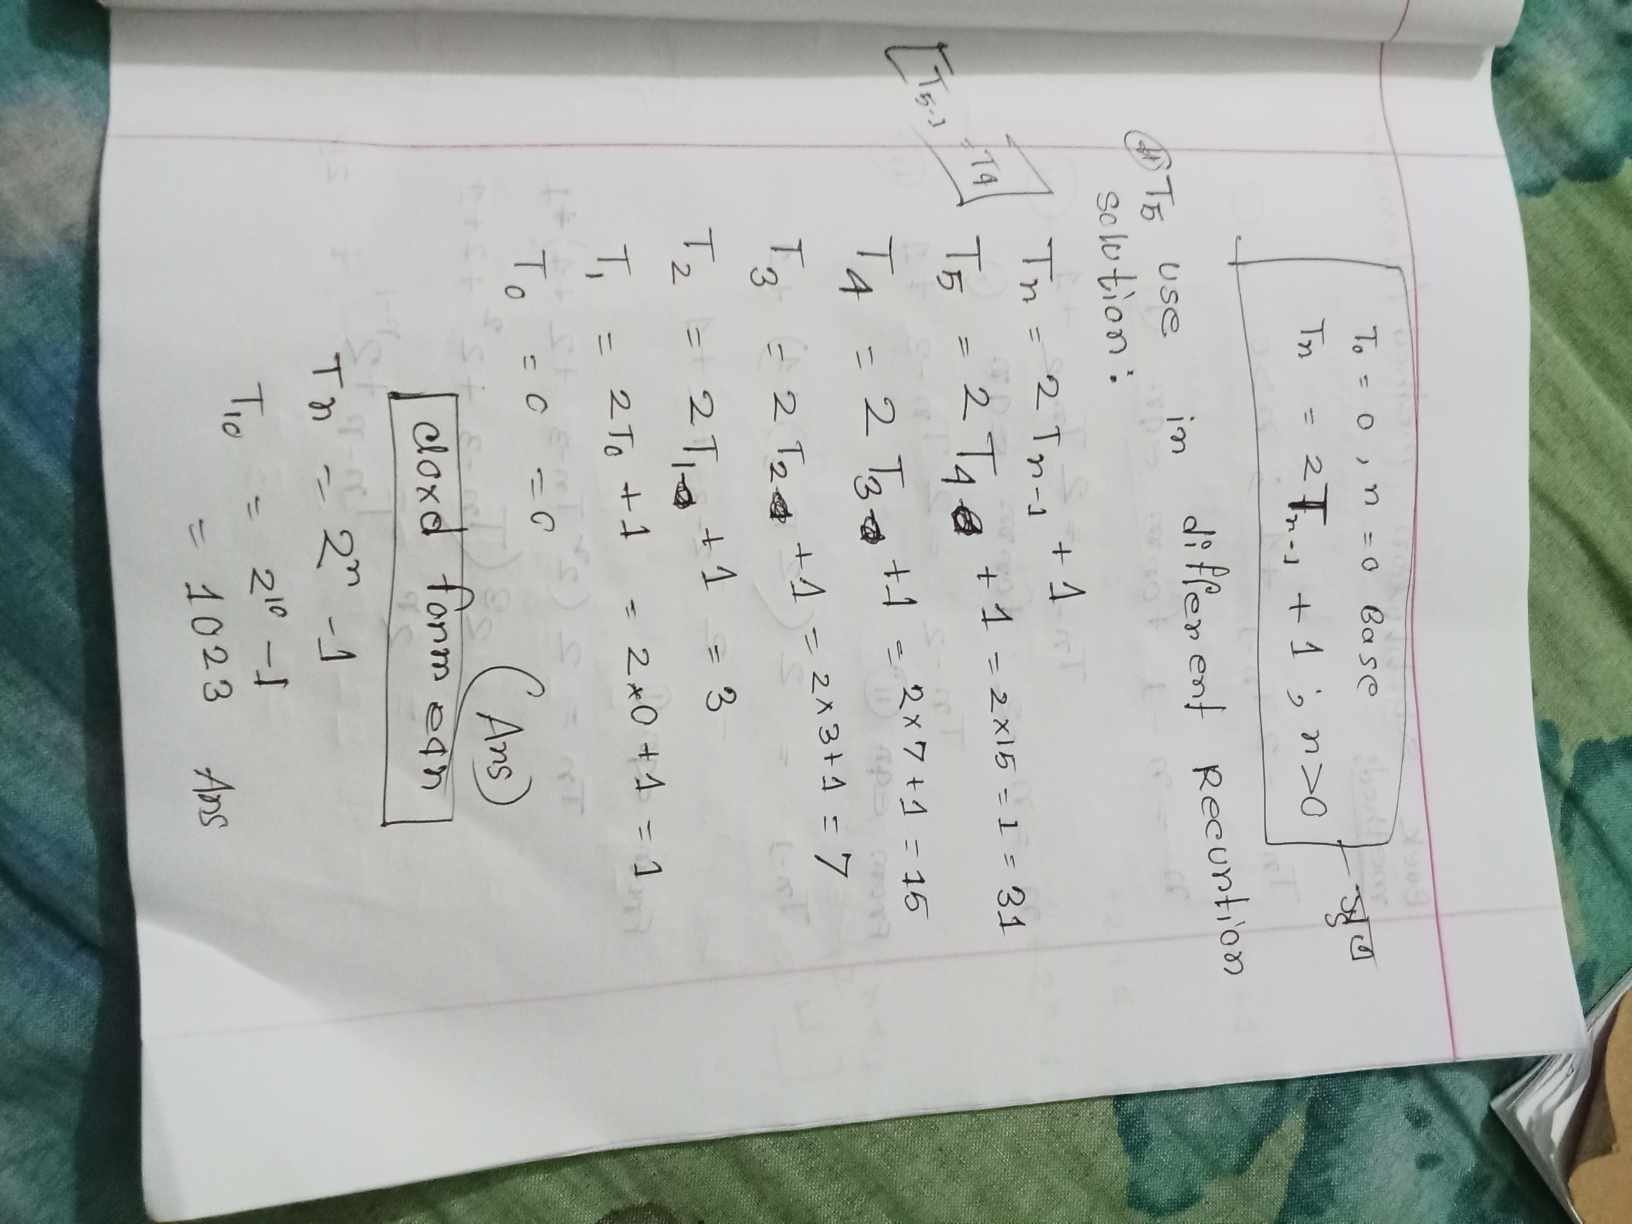 T₀ = 0 , n = 0 Base
Tn = 2Tn-1 + 1 ; n>0
সূত্র
T5 use in different Recurtion
solution:
Tn = 2 Tn-1 + 1
[T5-1 = T4]
T5 = 2 T4 + 1 = 2×15 = 1 = 31
T4 = 2 T3 +1 = 2×7+1 = 15
T3 = 2 T2 +1 = 2×3+1 = 7
T2 = 2T1 +1 = 3
T1 = 2T0 +1 = 2×0+1 = 1
T0 = 0 = 0
(Ans)
cloxd form eqn
Tn = 2ⁿ -1
T10 = 2¹⁰ -1
= 1023 Ans